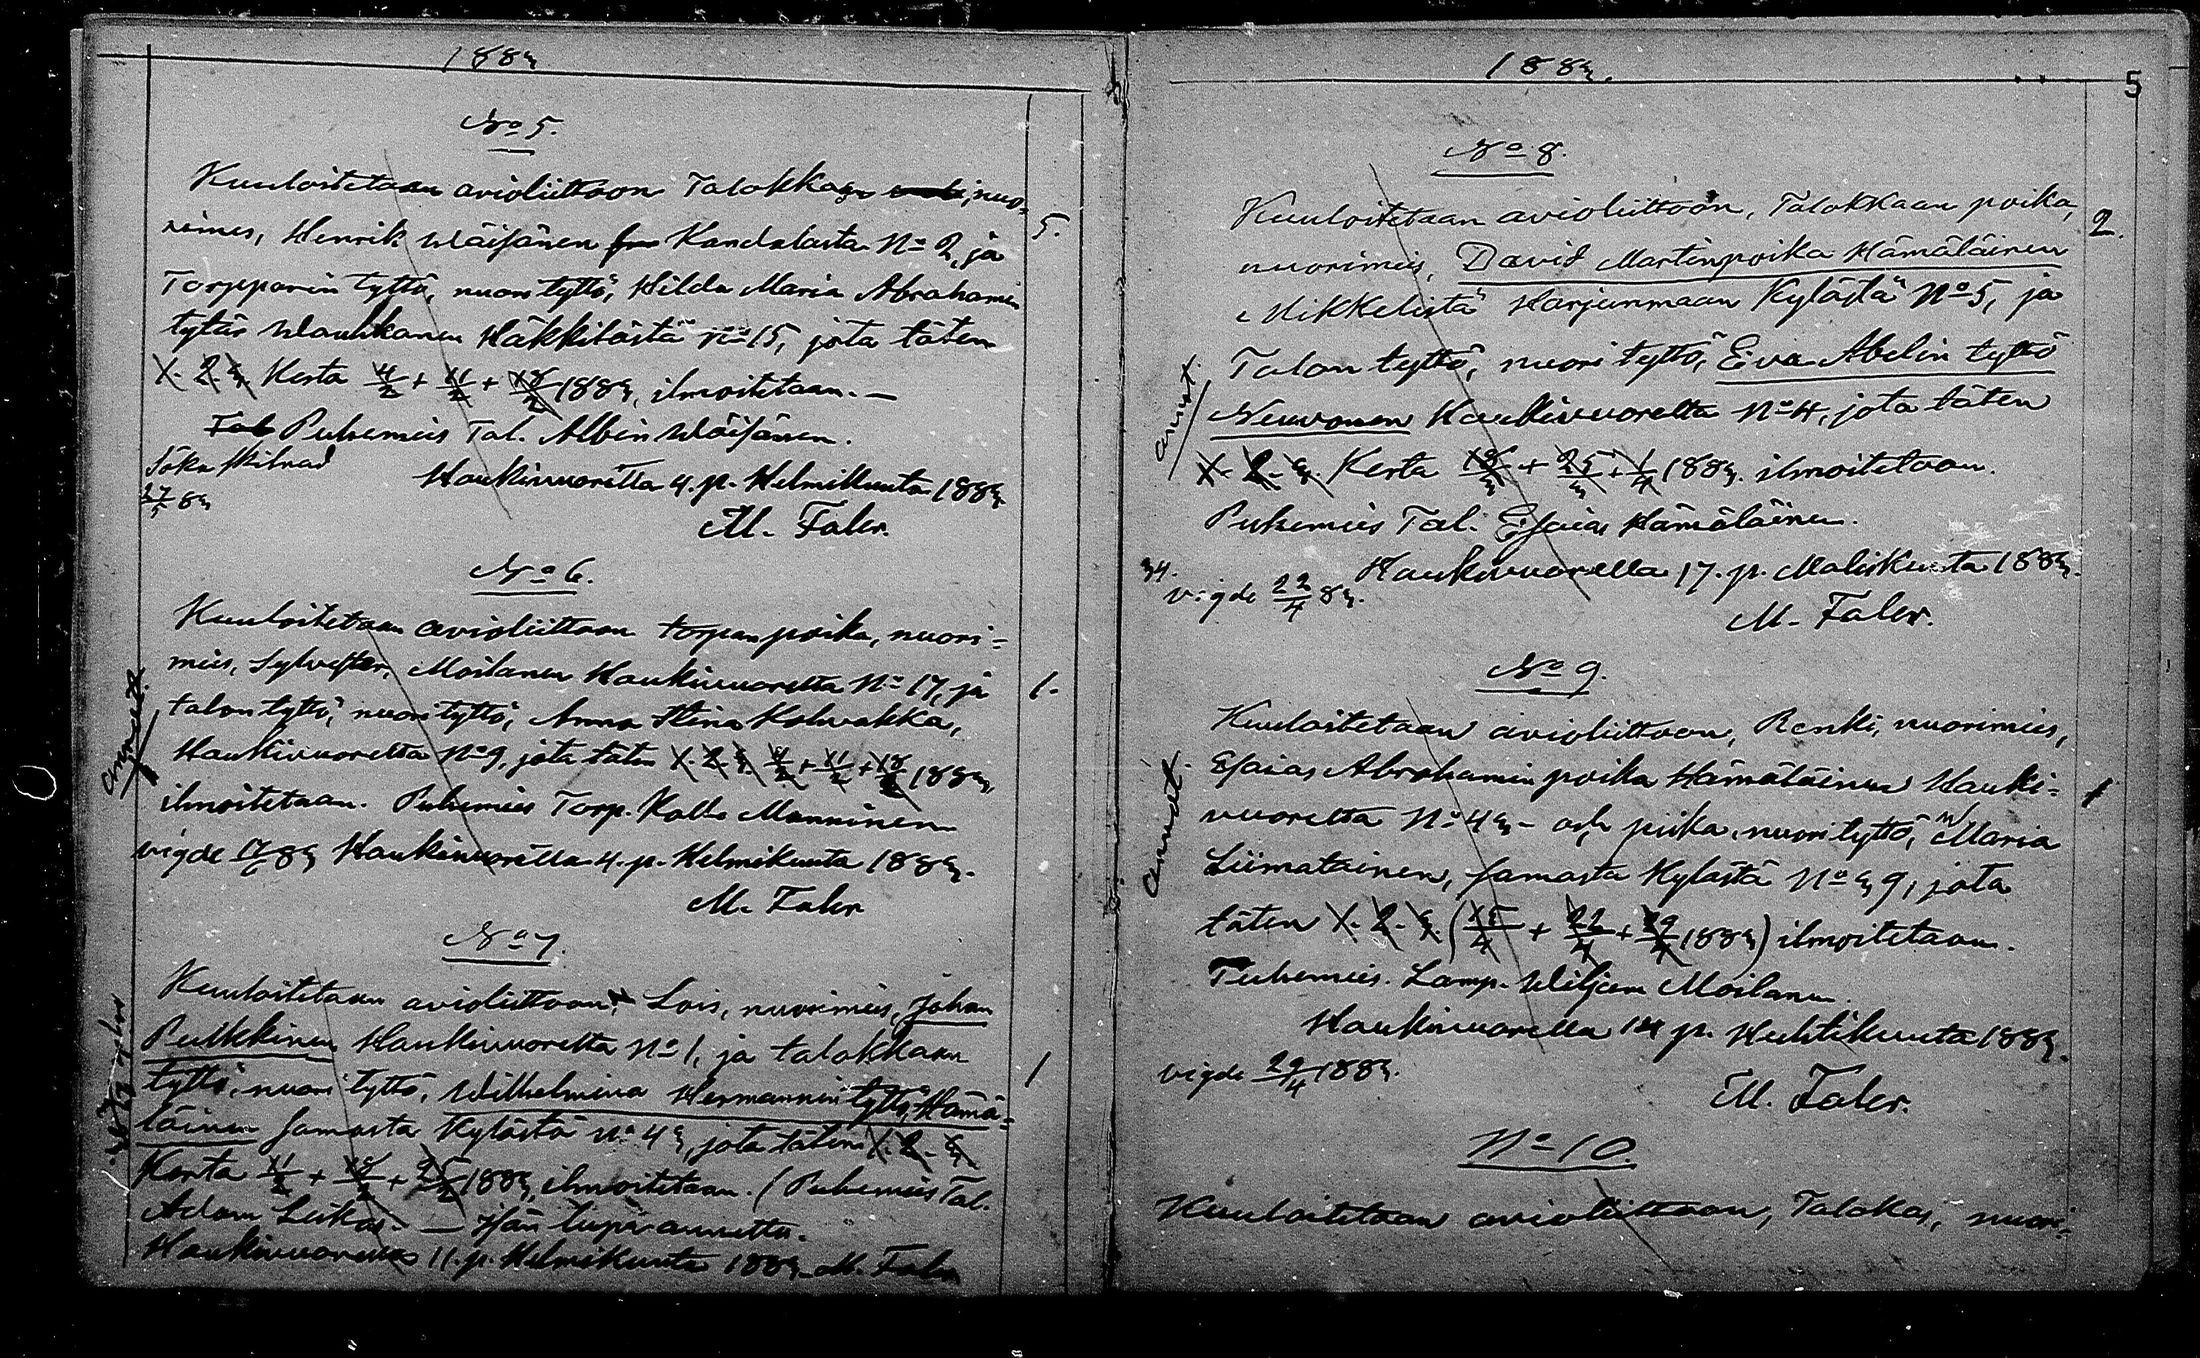 1883
No 5.
Kuuloitetaan avioliittoon Talokkaan, nuo-
5.
rimies, Henrik Wäisänen Kandalasta No 2, ja
Torpparin tyttö, nuori tyttö, Hilda Maria Abrahamin
tytär Wauhkonen Häkkilästä No 15, jota täten
1. 2. 3. Kerta 4/2 + 11/2 + 18/2 1883, ilmoitetaan. —
Tal Puhemies Tal. Albin Wäisänen.
Söka skilnad
27/5 83
Haukivuorella 4. p. Helmikuuta 1883.
M. Faler.
No 6.
Kuuloitetaan avioliittoon torpan poika, nuori-
mies, Sylvester, Moilanen Haukivuorelta No 17, ja
1.
talon tyttö, nuori tyttö, Anna Stina Kolvakka,
Haukivuorelta No 9, jota täten 1. 2. 3. 4/2 + 11/2 + 18/2 1883,
ilmoitetaan. Puhemies Torp. Kalle Manninen
vigde 83 Haukivuorella 4. p. Helmikuuta 1883.
M. Faler
No 7.
Kuuloitetaan avioliittoon, Lois, nuorimies, Johan
Pulkkinen Haukivuorelta No 1, ja talokkaan
tyttö, nuori tyttö, Wilhelmina Hermannin tyttö, Hämä-
1
läinen samasta Kylästä No 43, jota täten 1. 2. 3
Kerta 11/2 + 18/2 + 25/2 1883, ilmoitetaan. (Puhemies Tal.
Adam Leikas. — Isän lupa annettu.
Haukivuorella 11. p. Helmikuuta 1883. M. Faler
1883.
5
No 8.
Kuuloitetaan avioliittoon, Talokkaan poika,
2.
nuorimies, David Martinpoika Hämäläinen
Mikkelistä Harjunmaan Kylästä No 5, ja
Talon tyttö, nuori tyttö, Eva Abelin tyttö
Neuvonen Haukivuorelta No 4, jota täten
1. 2. 3. Kerta 18/3 + 25/3 + 1/4 1883. ilmoitetaan.
Puhemies Tal. Esaias Hämäläinen.
34.
Haukivuorella 17. p. Maliskuuta 1883.
vigde 22/4 83.
M. Faler.
No 9.
Kuuloitetaan avioliittoon, Renki, nuorimies,
Esaias Abrahamin poika Hämäläinen Hauki-
1
vuorelta No 43 — och piika, nuori tyttö, Maria
Liimatainen, samasta Kylästä No 39, jota
täten 1. 2. 3. (15/4 + 22/4 + 29/4 1883) ilmoitetaan.
Puhemies. Lamp. Wiljam Moilanen.
Haukivuorella 14 p. Huhtikuuta 1883.
vigde 29/4 1883.
M. Faler.
No 10.
Kuuloitetaan avioliittoon, Talokas, nuori-